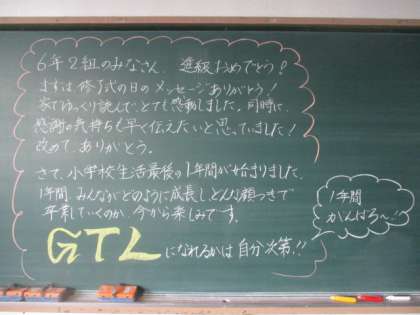 6年2組のみなさん、進級おめでとう!
まずは修了式の日のメッセージありがとう!
家でゆっくり読んで、とても感動しました。同時に、
感謝の気持ちも早く伝えたいと思っていました!
改めて、ありがとう。
さて、小学校生活最後の1年間が始まりました。
1年間 みんながどのように成長し、どんな顔つきで
卒業していくのか、今から楽しみです。
GTLになれるかは自分次第!!
1年間
がんばろ〜!!